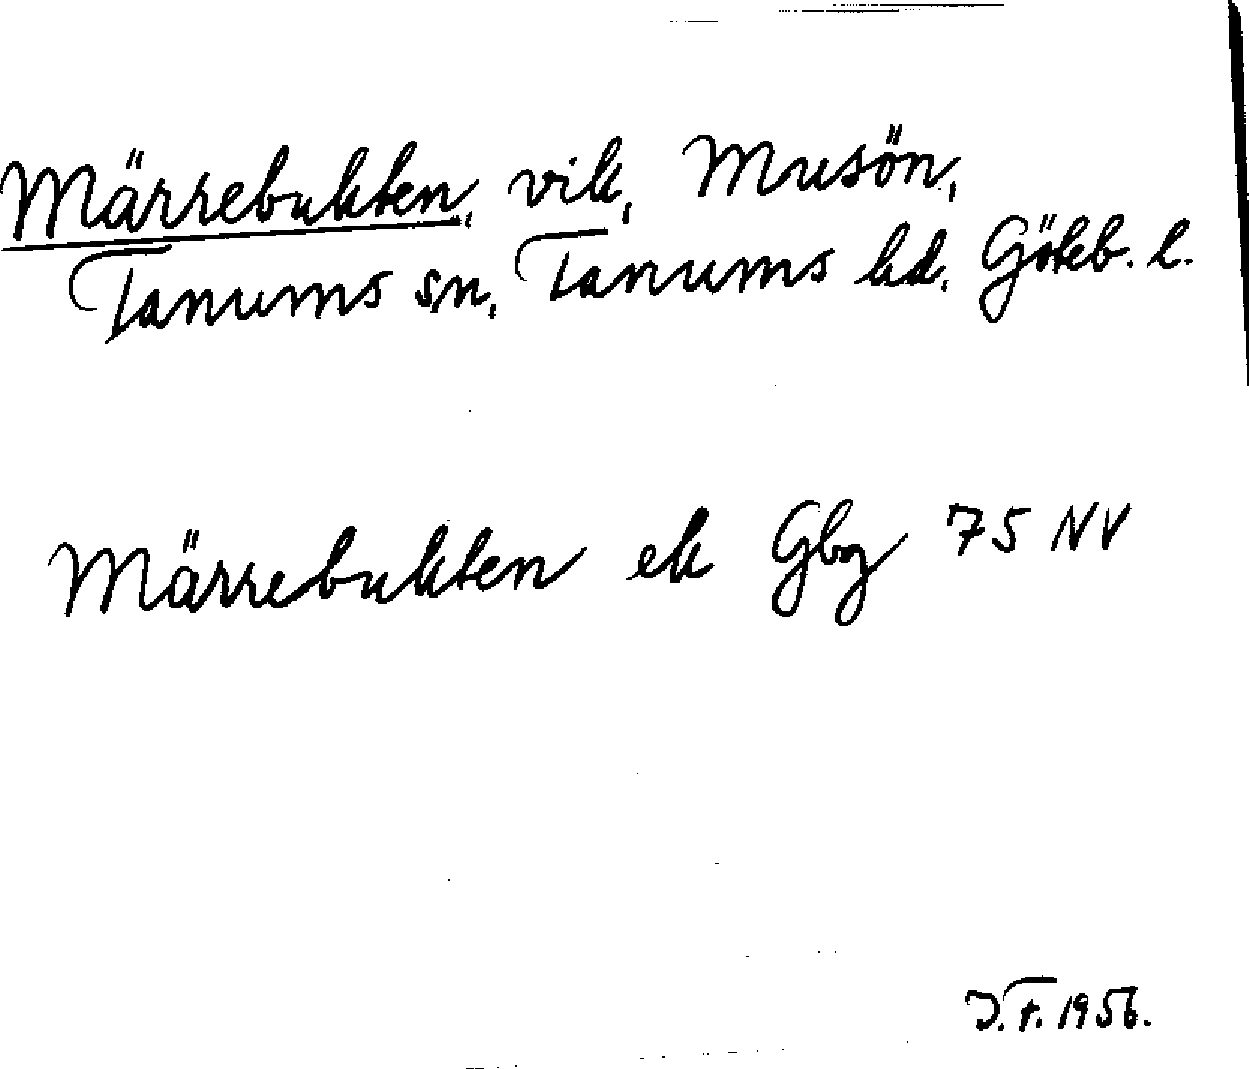 Märrebukten, vik, Musön,
Tanums sn, Tanums hd, Göteb. l.
Märrebukten ek Gbg 75 NV
J.F. 1956.